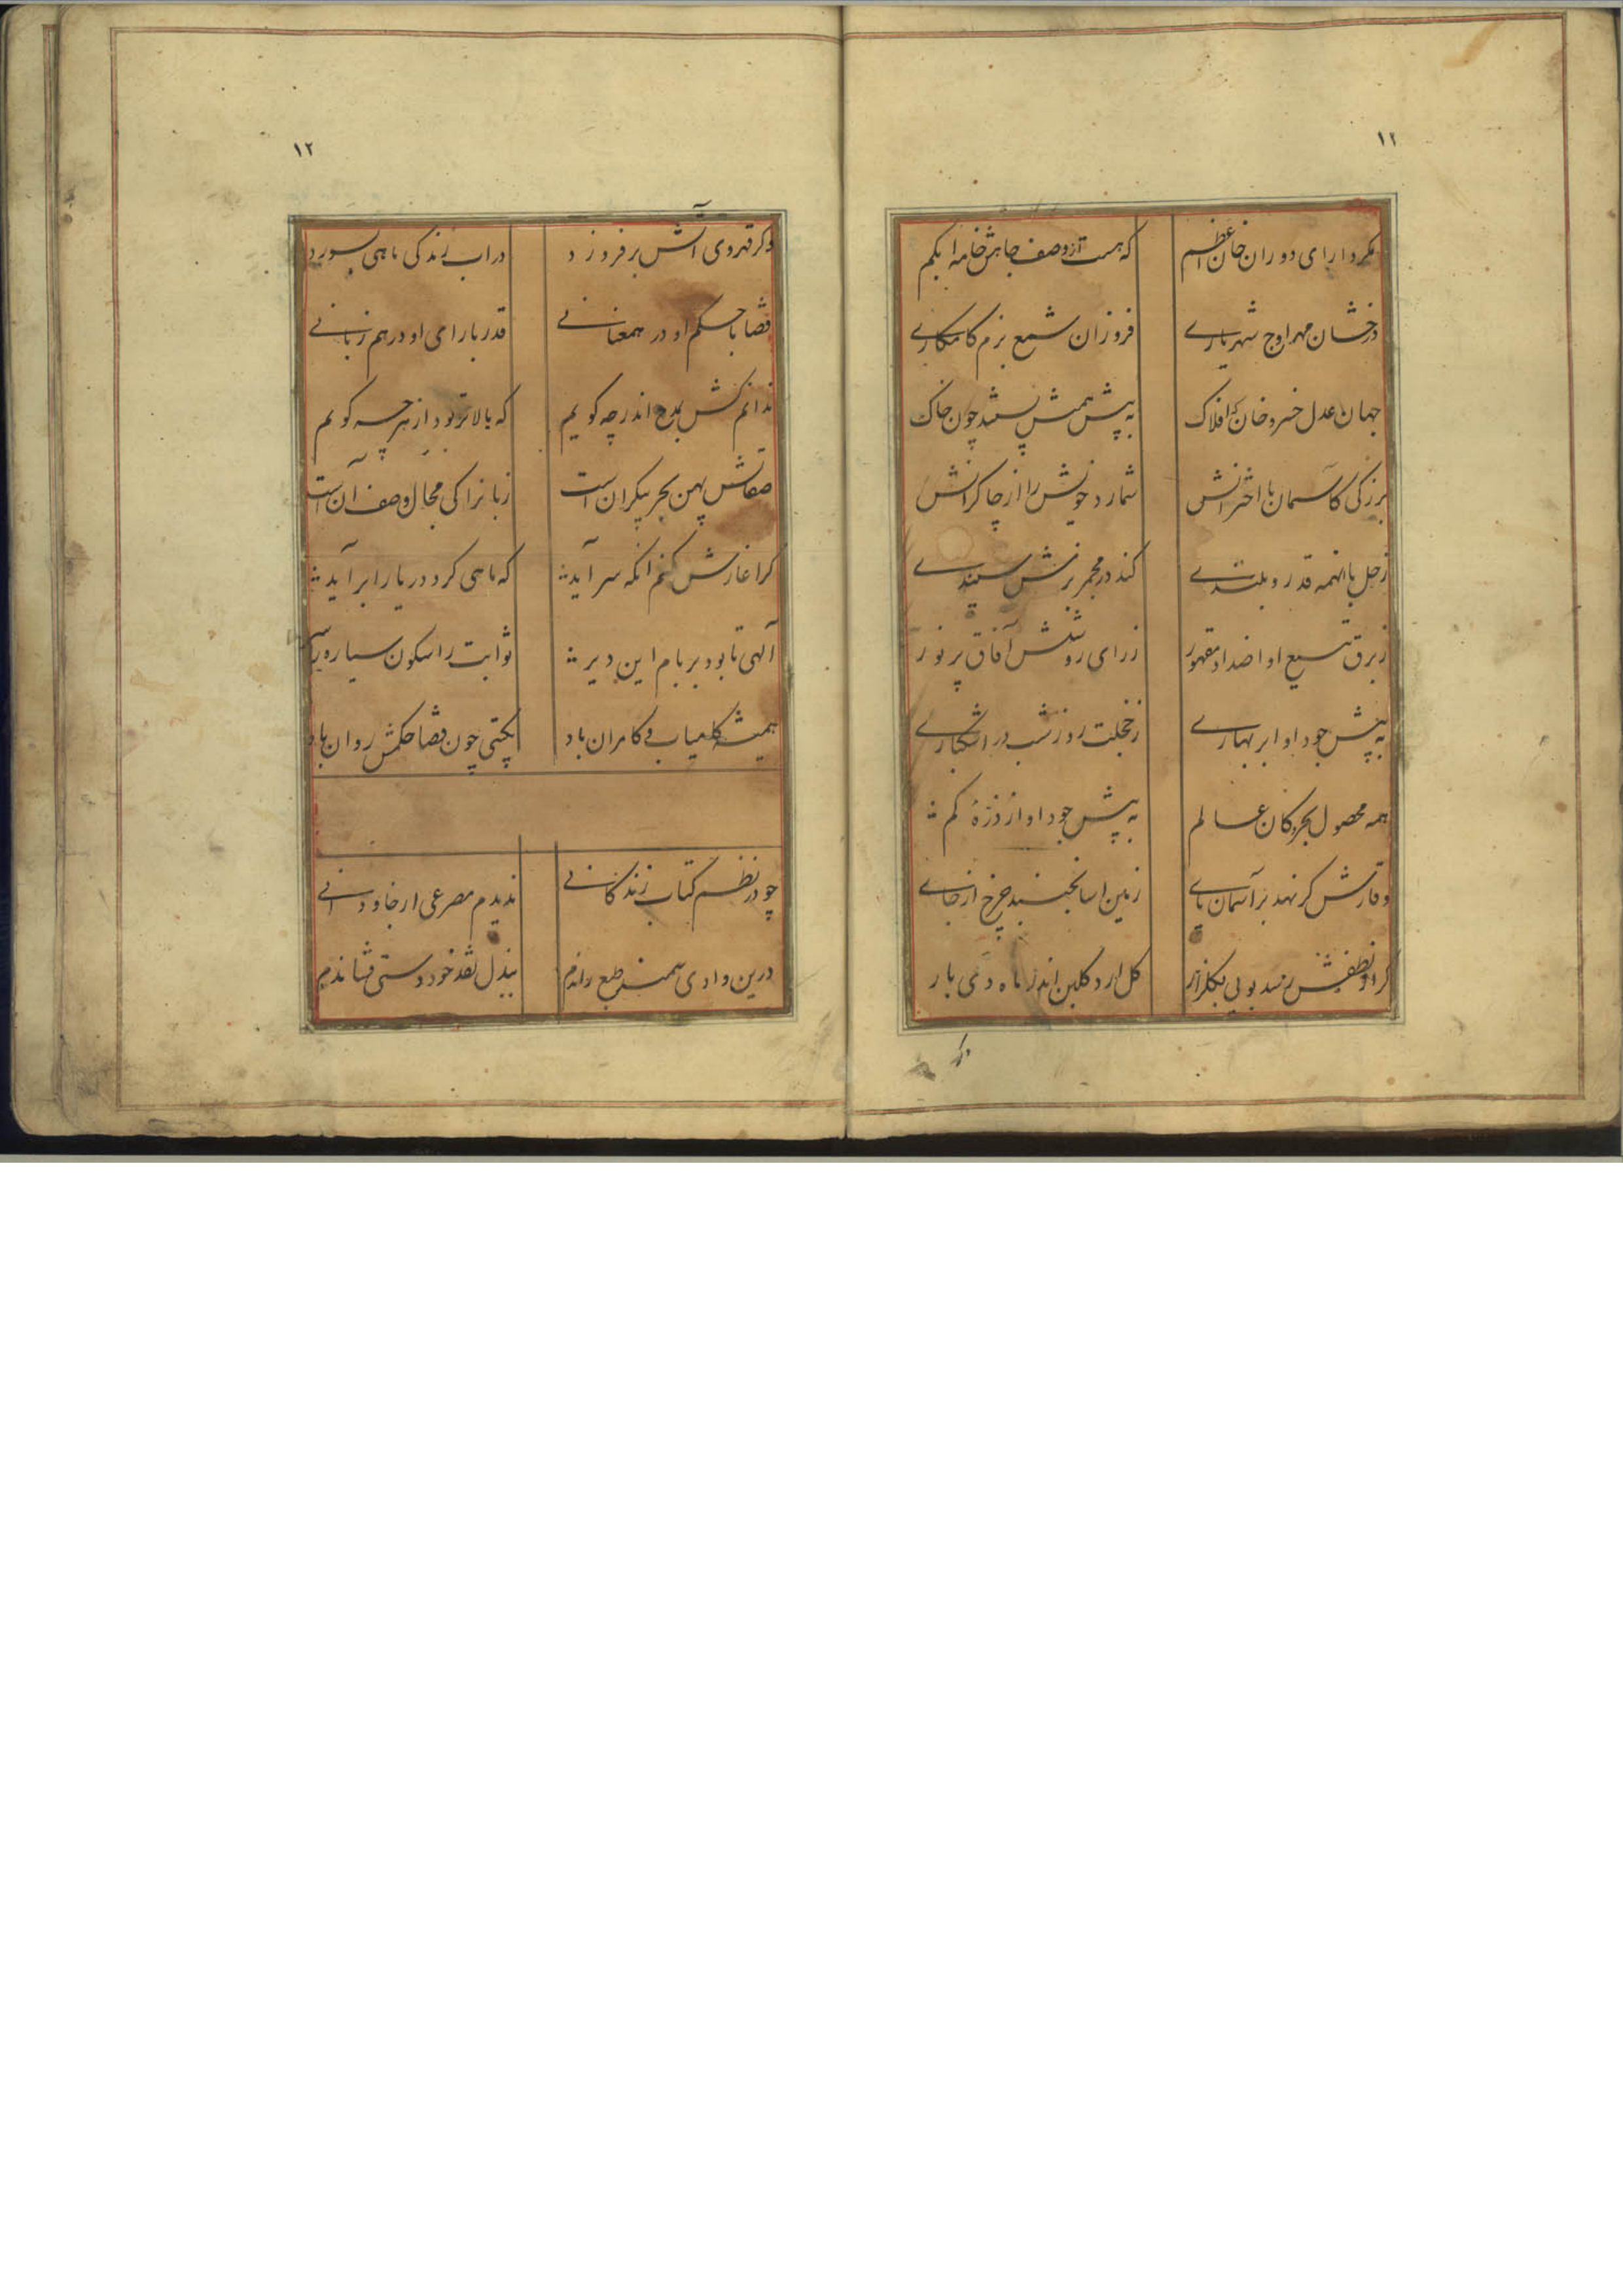 ۱۲
مکر دارای دوران خان اعظم
که هست از وصف جاهش خامه ابکم
درخشان مهر اوج شهریاری
فروزان شمع بزم کامکاری
جهان عدل خسرو خان که افلاک
به پیش همتش پستند چون خاک
بزرکی کاسمان با اخترانش
شمارد خویش را از چاکرانش
زحل با انهمه قدر و بلندی
کند در مجمر بزمش سپندی
ز برق تیغ او اضداد مقهور
ز رای روشنش آفاق پر نور
به پیش جود او ابر بهاری
ز خجلت روز شب در اشکباری
همه محصول بحر و کان عالم
به پیش جود او از ذرهٔ کم
وقارش کر نهد بر آسمان پای
زمین اسا نجنبد چرخ از جای
کر از لطفش رسد بویی بکلزار
کل ارد کلبن اندر ماه دی بار
وکر
۱۲
وکر قهر وی آتش بر فروزد
در اب زندکی ماهی بسوزد
قضا با حکم او در همعنانی
قدر با رای او در هم زبانی
ندانم کش بمدح اندر چه کویم
که بالاتر بود از هرچه کویم
صفاتش پهن بحر بیکران است
زبانرا کی مجال وصف آن است
کر اغازش کنم انکه سر آید
که ماهی کرد دریا را بر آید
آلهی تا بود بر بام این دیر
ثوابت را سکون سیاره را سیر
همیشه کامیاب و کامران باد
بکیتی چون قضا حکمش روان باد
چو در نظم کتاب زندکانی
ندیدم مصرعی از جاودانی
درین وادی سمند طبع راندم
ببذل نقد خود دستی فشاندم